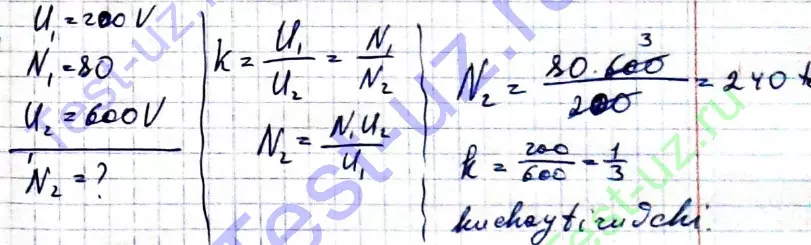 U₁ = 200 V
N₁ = 80
U₂ = 600 V
N₂ = ?
k = U₁/U₂ = N₁/N₂
N₂ = N₁U₂/U₁
N₂ = 80 · 600/200 = 240 ta
3
k = 200/600 = 1/3
kuchaytiruvchi.
Test-uz.ru
Test-uz.ru
Test-uz.ru